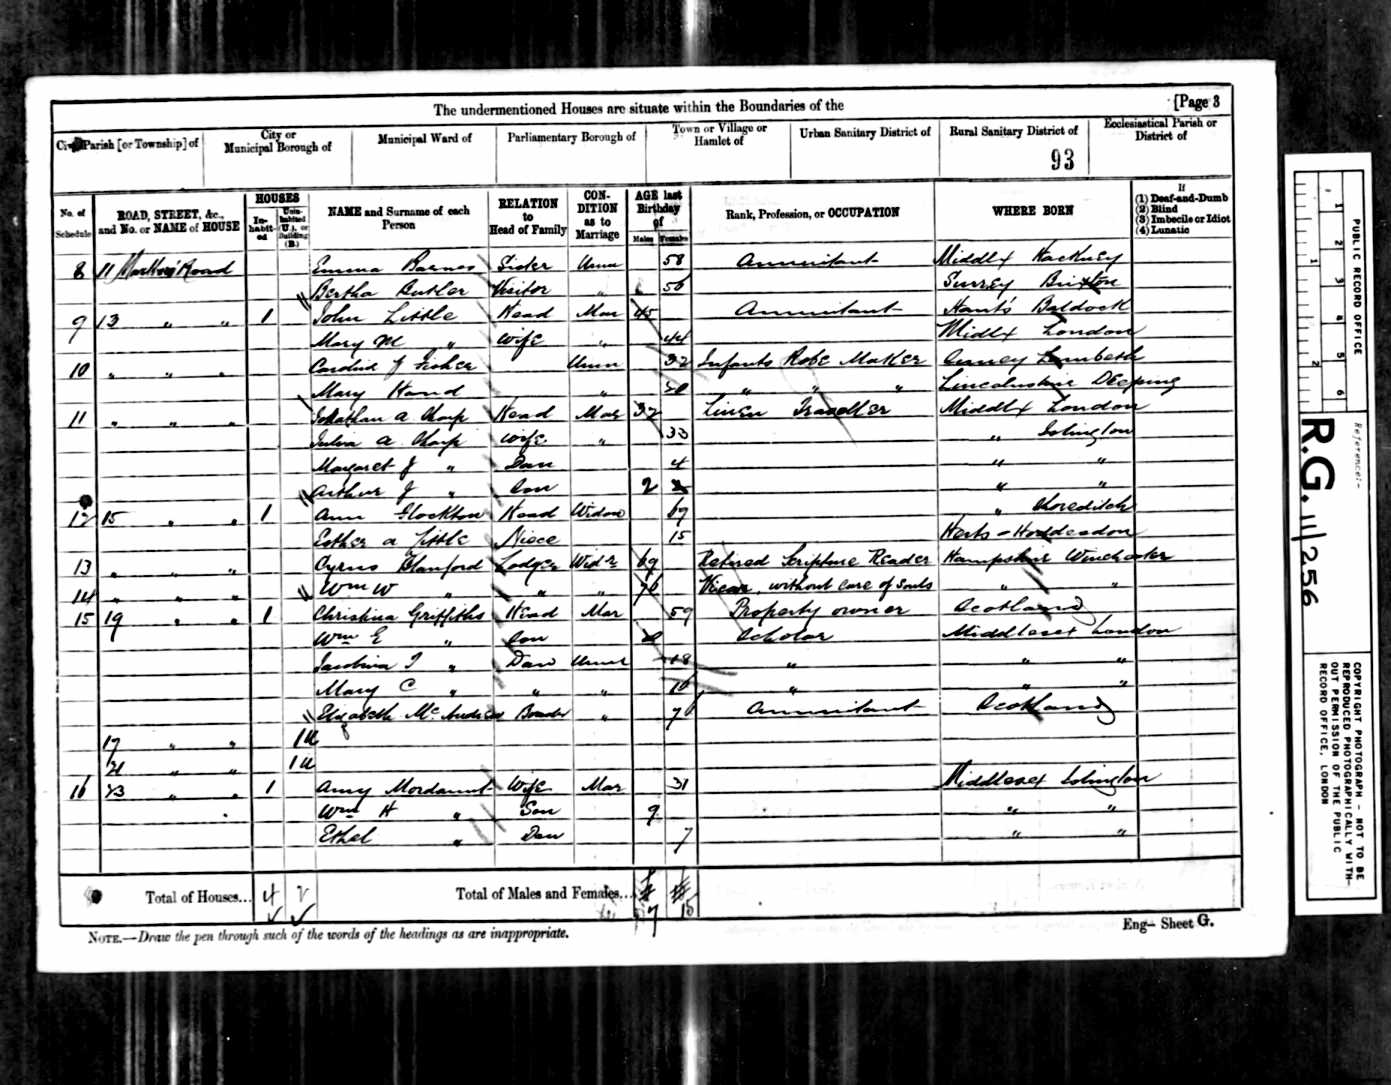 The undermentioned Houses are situate within the Boundaries of the [Page 3
Civil Parish [or Township] of
City or Municipal Borough of
Municipal Ward of
Parliamentary Borough of
Town or Village or Hamlet of
Urban Sanitary District of
Rural Sanitary District of
93
Ecclesiastical Parish or District of
No. of Schedule
ROAD, STREET, &c., and No. or NAME of HOUSE
HOUSES
In-habit-ed
Unin-habited (U.), or Building (B.)
NAME and Surname of each Person
RELATION to Head of Family
CON-DITION as to Marriage
AGE last Birthday of
Males Females
Rank, Profession, or OCCUPATION
WHERE BORN
If
(1) Deaf-and-Dumb
(2) Blind
(3) Imbecile or Idiot
(4) Lunatic
8 11 Road Emma Barnes Sister Unm 58 Annuitant Middlx Hackney
Bertha Butler Visitor " 56 Surrey Brixton
9 13 " " 1 John Little Head Mar 45 Annuitant Hants Baldock
Mary M " Wife " 44 Midlx London
10 " " " J Fisher Unm 32 Infants Robe Maker Lambeth
Mary Hand " " " " Lincolnshire Deeping
11 " " " Jonathan A Sharp Head Mar 37 Linen Traveller Middlx London
Julia A Sharp Wife " 33 " Islington
Margaret J " Daur 4 " "
Arthur J " Son 2 " "
12 15 " " 1 Ann Head Widow 67 " Shoreditch
Esther A Little Niece 15 Herts - Hoddesdon
13 " " " Cyrus Blanford Lodger Widr 69 Retired Scripture Reader Hampshire Winchester
14 " " " Wm W " " " 76 Vicar, without care of Souls " "
15 19 " " 1 Christina Griffiths Head Mar 59 Property owner Scotland
Wm E " Son Scholar Middlesex London
Jacobina I " Daur Unmd 18 " " "
Mary C " " " 16 " " "
Elizabeth Boarder " 76 Annuitant Scotland
17 " " 1 U
21 " " 1 U
16 23 " " 1 Amy Mordaunt Wife Mar 31 Middlesex Islington
Wm H " Son 9 " "
Ethel " Daur 7 " "
Total of Houses... 4 2 Total of Males and Females... 7 15
NOTE.—Draw the pen through such of the words of the headings as are inappropriate.
Eng— Sheet G.
PUBLIC RECORD OFFICE
1 2 3 4 5 6
1 2
Reference:-
R.G. 11/256
COPYRIGHT PHOTOGRAPH - NOT TO BE REPRODUCED PHOTOGRAPHICALLY WITH-OUT PERMISSION OF THE PUBLIC RECORD OFFICE, LONDON